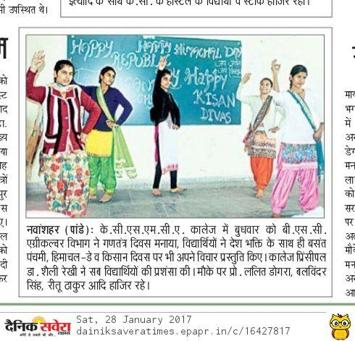 इत्यादि के साथ के.सी. के हॉस्टल के विद्यार्थी व स्टाफ हाजिर रहा।
उपस्थित थे।
HAPPY HIMACHAL DAY
HAPPY
REPUBLIC
HAPPY
KISAN
DIVAS
नवांशहर (पांडे): के.सी.एस.एम.सी.ए. कालेज में बुधवार को बी.एस.सी.
एग्रीकल्चर विभाग ने गणतंत्र दिवस मनाया, विद्यार्थियों ने देश भक्ति के साथ ही बसंत
पंचमी, हिमाचल-डे व किसान दिवस पर भी अपने विचार प्रस्तुति किए। कालेज प्रिंसीपल
डा. शैली रेखी ने सब विद्यार्थियों की प्रशंसा की। मौके पर प्रो. ललित डोगरा, बलविंदर
सिंह, रीतू ठाकुर आदि हाजिर रहे।
दैनिक सवेरा
Sat, 28 January 2017
dainiksaveratimes.epapr.in/c/16427817